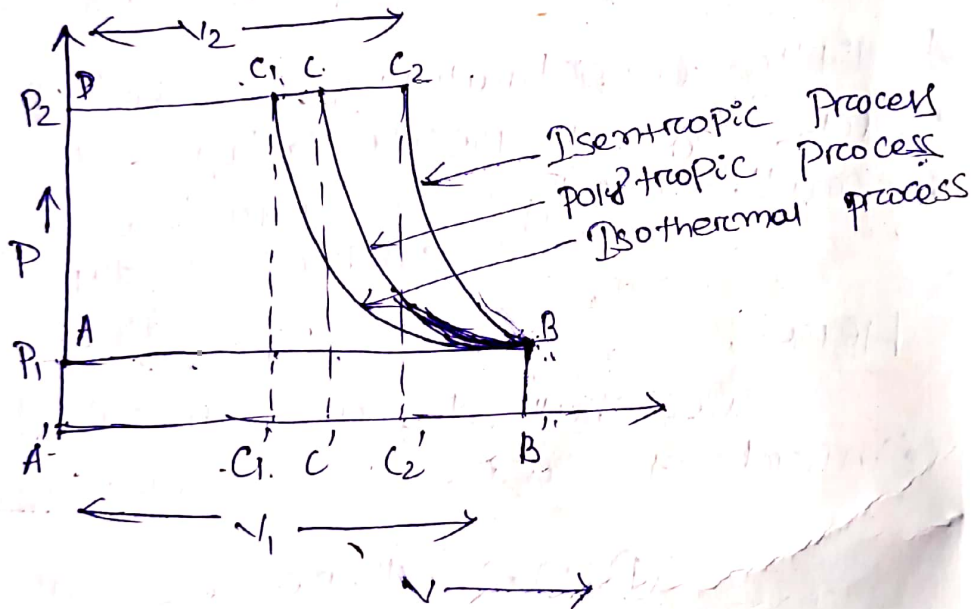 V2
C1 C C2
P2 D
Isentropic Process
polytropic process
Isothermal process
P
A
B
P1
A' C1' C' C2' B'
V1
V